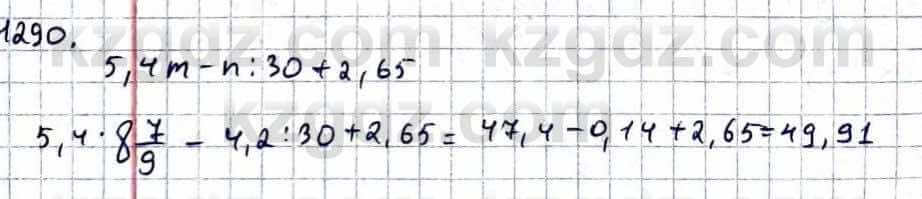 1290.
5,4m-n:30+2,65
5,4·8 7/9 - 4,2:30+2,65= 47,4-0,14+2,65=49,91
kzgdz.com kzgdz.com
kzgdz.com